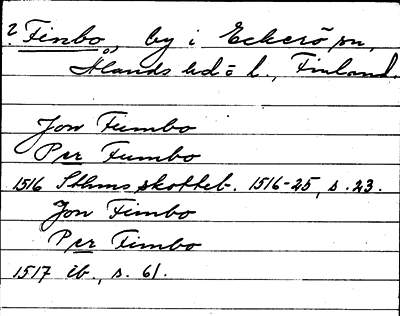 ? Finbo, by i Eckerö sn,
Ålands hd = l., Finland.
Jon Fumbo
Per Fumbo
1516 Sthms skotteb. 1516-25, s. 23.
Jon Fimbo
Per Fimbo
1517 ib., s. 61.